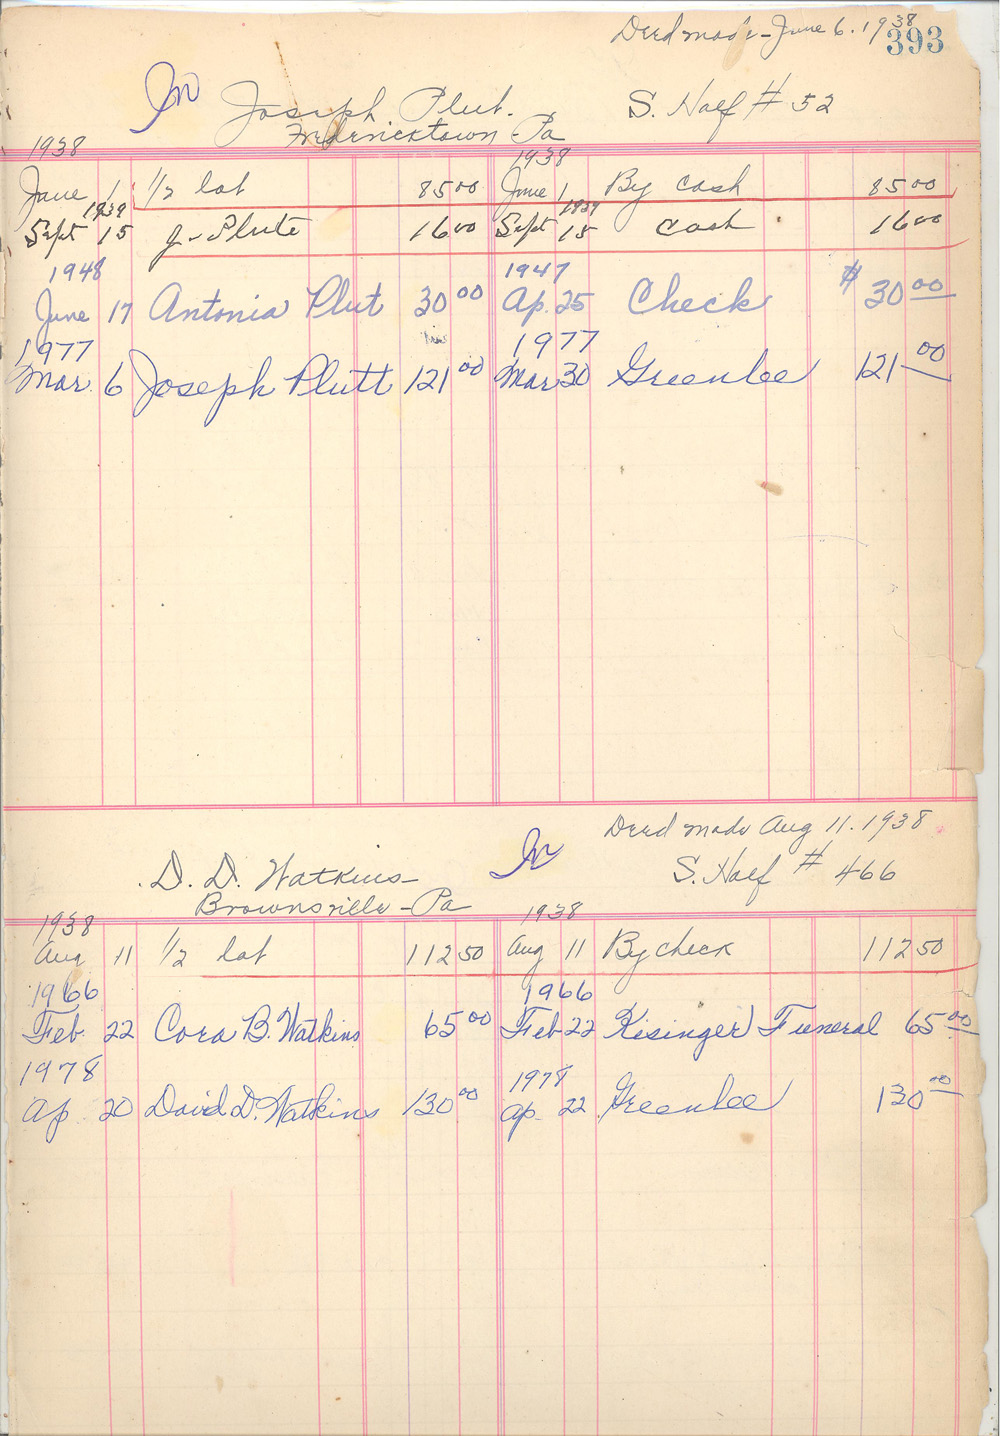 Deed made - June 6. 1938
393
In Joseph Plut. S. Half # 52
Fredericktown - Pa
1938 1938
June 1 1/2 lot 85 00 June 1 By cash 85 00
1939 1939
Sept 15 J - Plute 16 00 Sept 15 Cash 16 00
1948 1947
June 17 Antonia Plut 30 00 Ap. 25 Check $ 30 00
1977 1977
Mar. 6 Joseph Plutt 121 00 Mar 30 Greenlee 121 00
Deed made Aug 11. 1938
D. D. Watkins - In S. Half # 466
Brownsville - Pa
1938 1938
Aug 11 1/2 lot 112 50 Aug 11 By check 112 50
1966 1966
Feb. 22 Cora B. Watkins 65 00 Feb 22 Kisinger Funeral 65 00
1978 1978
Ap. 20 David D. Watkins 130 00 Ap. 22 Greenlee 130 00